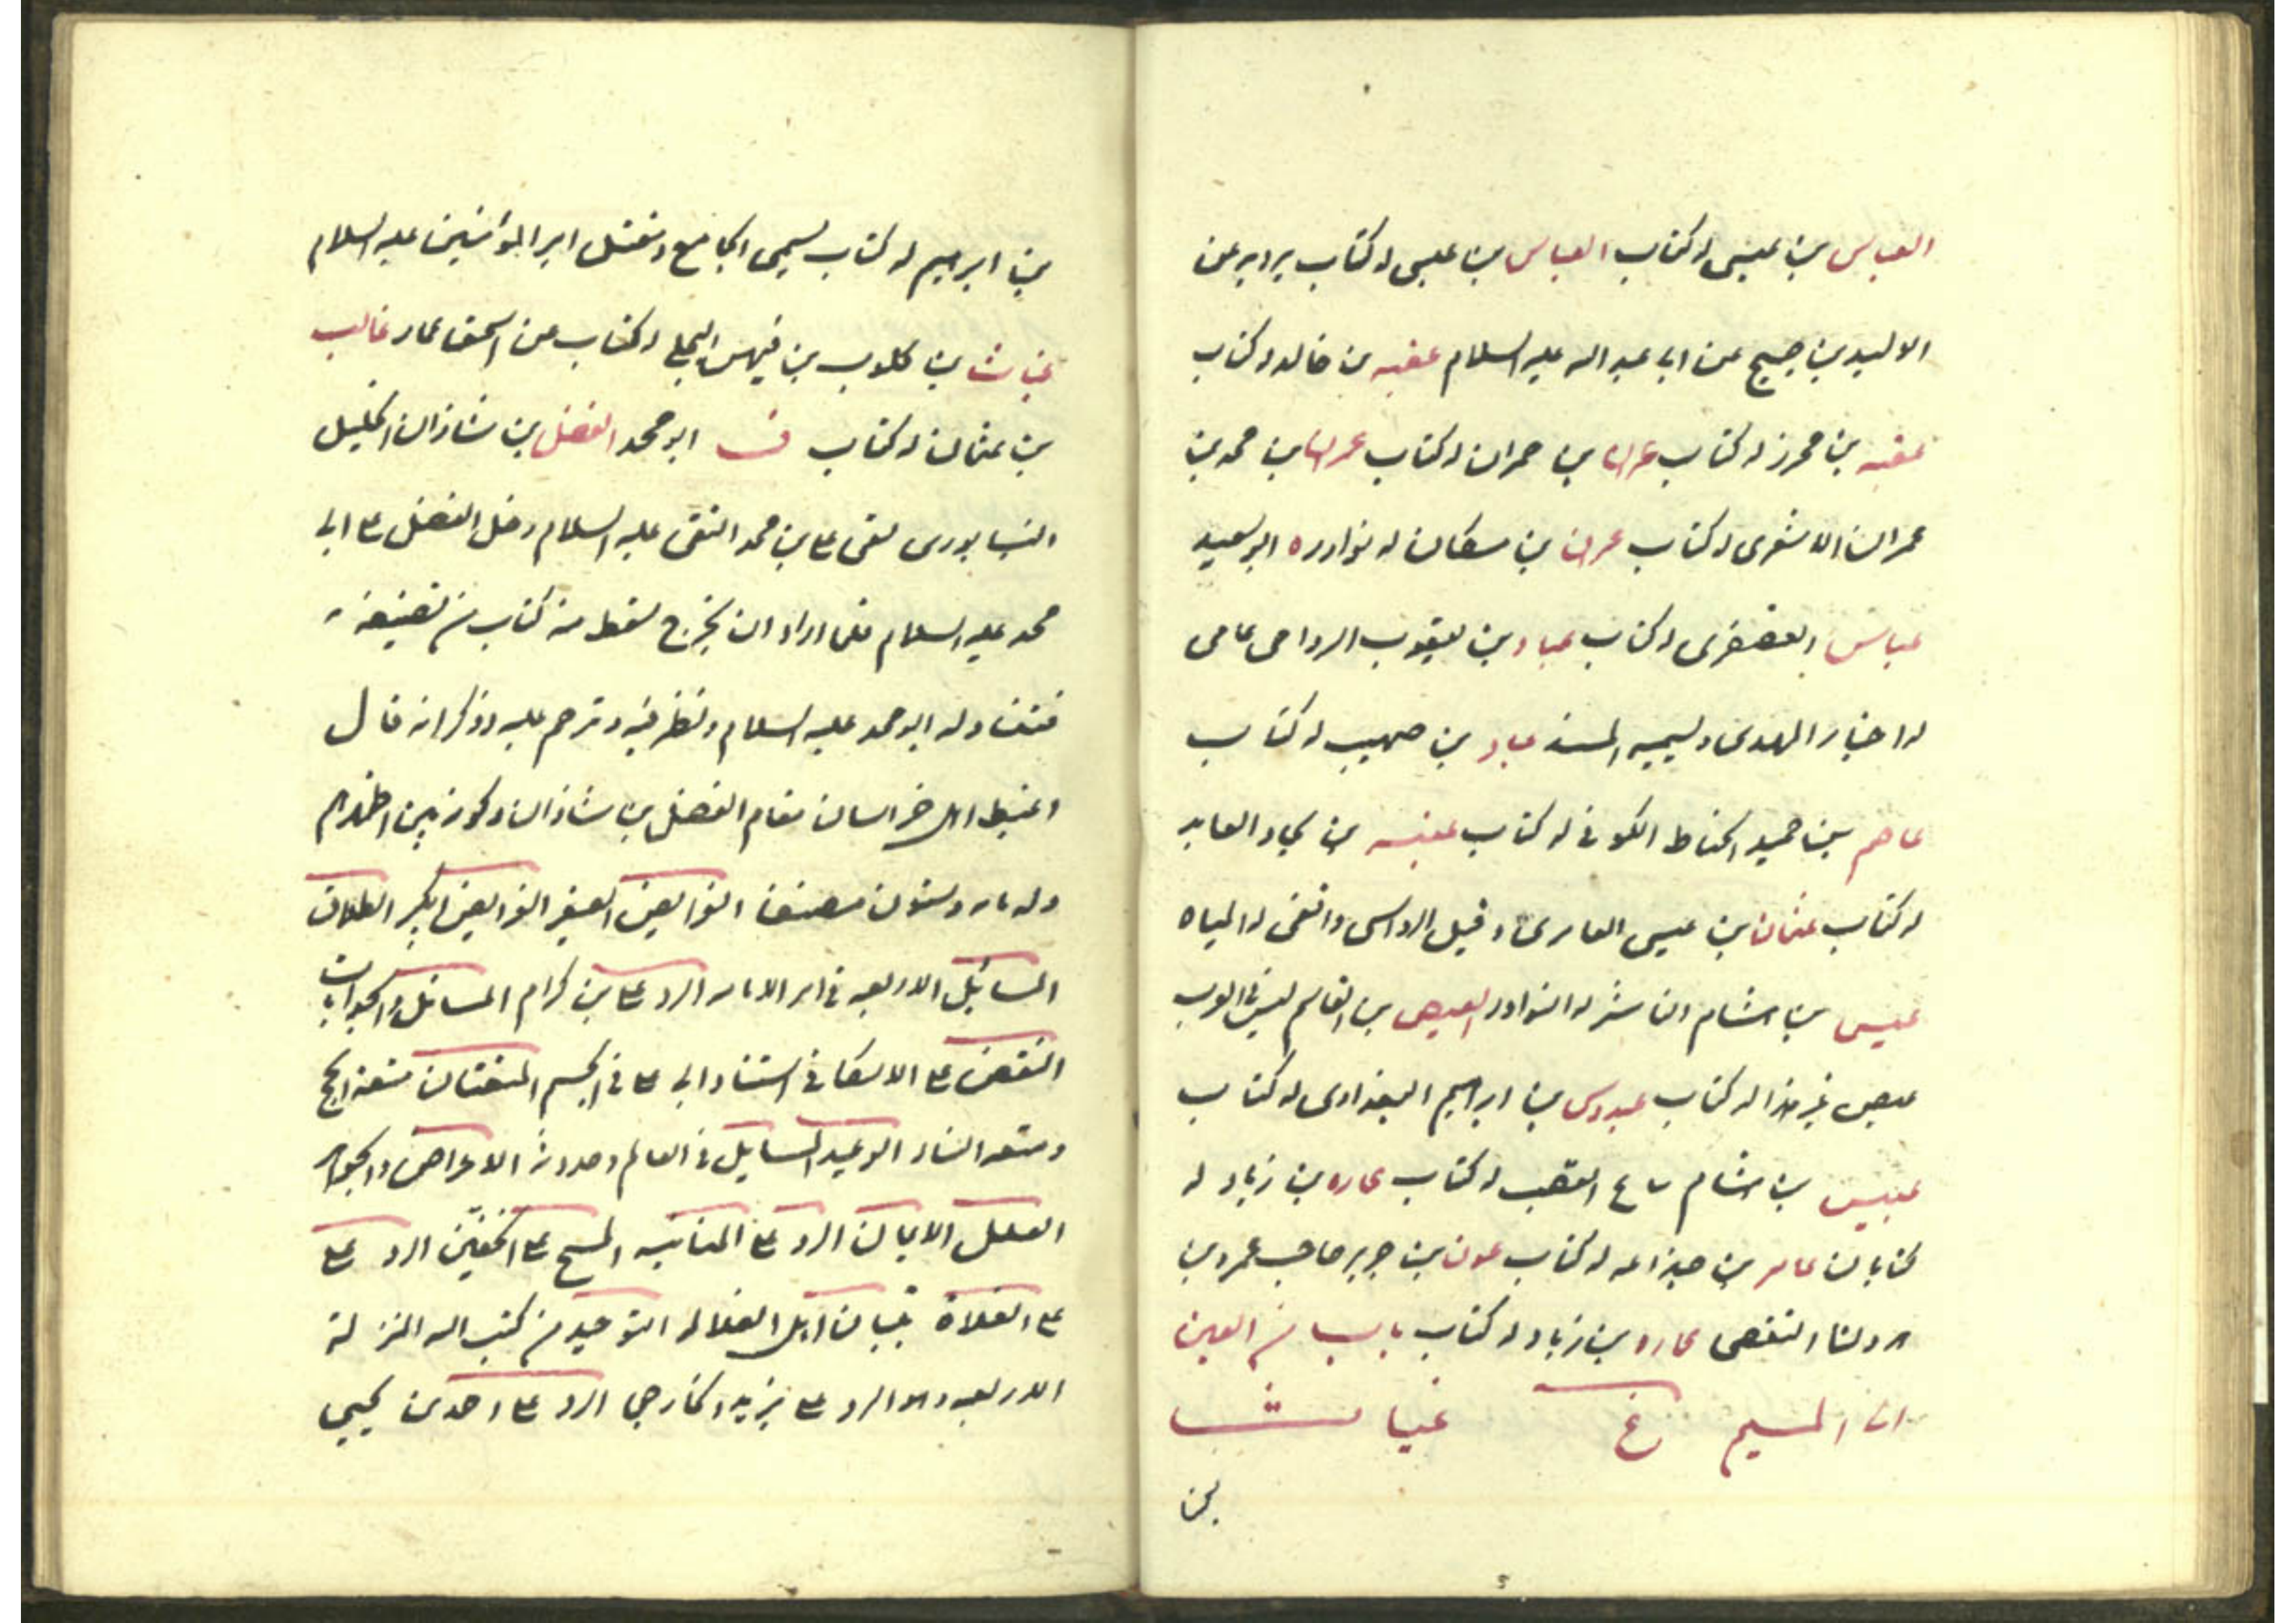 العباس بن عيسى له كتاب العباس بن عيسى له كتاب يرويه عن
الوليد بن صبيح عن ابى عبد اله عليه السلام عقبه بن خالد له كتاب
عقبه بن محرز له كتاب عمران بن حمران له كتاب عمران بن محمد بن
عمران الاشعرى له كتاب عمران بن مسكان له نوادره ابو سعيد
عباس العصفرى له كتاب عباد بن يعقوب الرواجى عامى
له اخبار المهدى ويسميه المسند عباد بن صهيب له كتاب
عاصم بن حميد الحناط الكوفى له كتاب عنبسه بن بجاد العابد
له كتاب عثمان بن عيسى العامرى وقيل الرواسى واقفى له المياه
عبيس بن هشام الناشر له النوادر العيص بن القاسم ليس فى العرب
عيص غير هذا له كتاب عبدوس بن ابراهيم البغدادى له كتاب
عبيس بن هشام القصب له كتاب عماره بن زياد له
كتابان عامر بن جذاعه له كتاب عون بن جرير صاحب عمرو بن
عماره بن زياد له كتاب باب من العين
الى الميم غ غياث
بن
بن ابرهيم له كتاب يسمى الجامع ومقتل امير المؤمنين عليه السلام
غياث بن كلوب بن فيهس البجلى له كتاب عن اسحق عمار غالب
بن عثمان له كتاب ف ابو محمد الفضل بن شاذان الجليل
النيسابورى لقى على بن محمد التقى عليه السلام دخل الفضل على ابى
محمد عليه السلام فلما اراد ان يخرج سقط منه كتاب من تصنيفه
فتناوله ابو محمد عليه السلام ونظر فيه وترحم عليه وذكر انه قال
اغبط اهل خراسان مقام الفضل بن شاذان وكونه بين اظهرهم
وله مايه وستون مصنفا الفرايض الصغير الفرايض الكبير الطلاق
المسائل الاربعه فى امر الامامه الرد على بن كرام المسائل والجوابات
النقض على الاسكافى استناد ابى على فى الجسم المتعتان متعة الحج
ومتعه النساء الوعيد المسايل فى العالم وحدوثه الاعراض والجواهر
العلل الايمان الرد على المنانيه المسح على الخفين الرد على
على الغلاة تبيان اهل الضلاله التوحيد من كتب اله المنزلة
الاربعه وهو الرد على يزيد الخارجى الرد على احمد بن يحيى